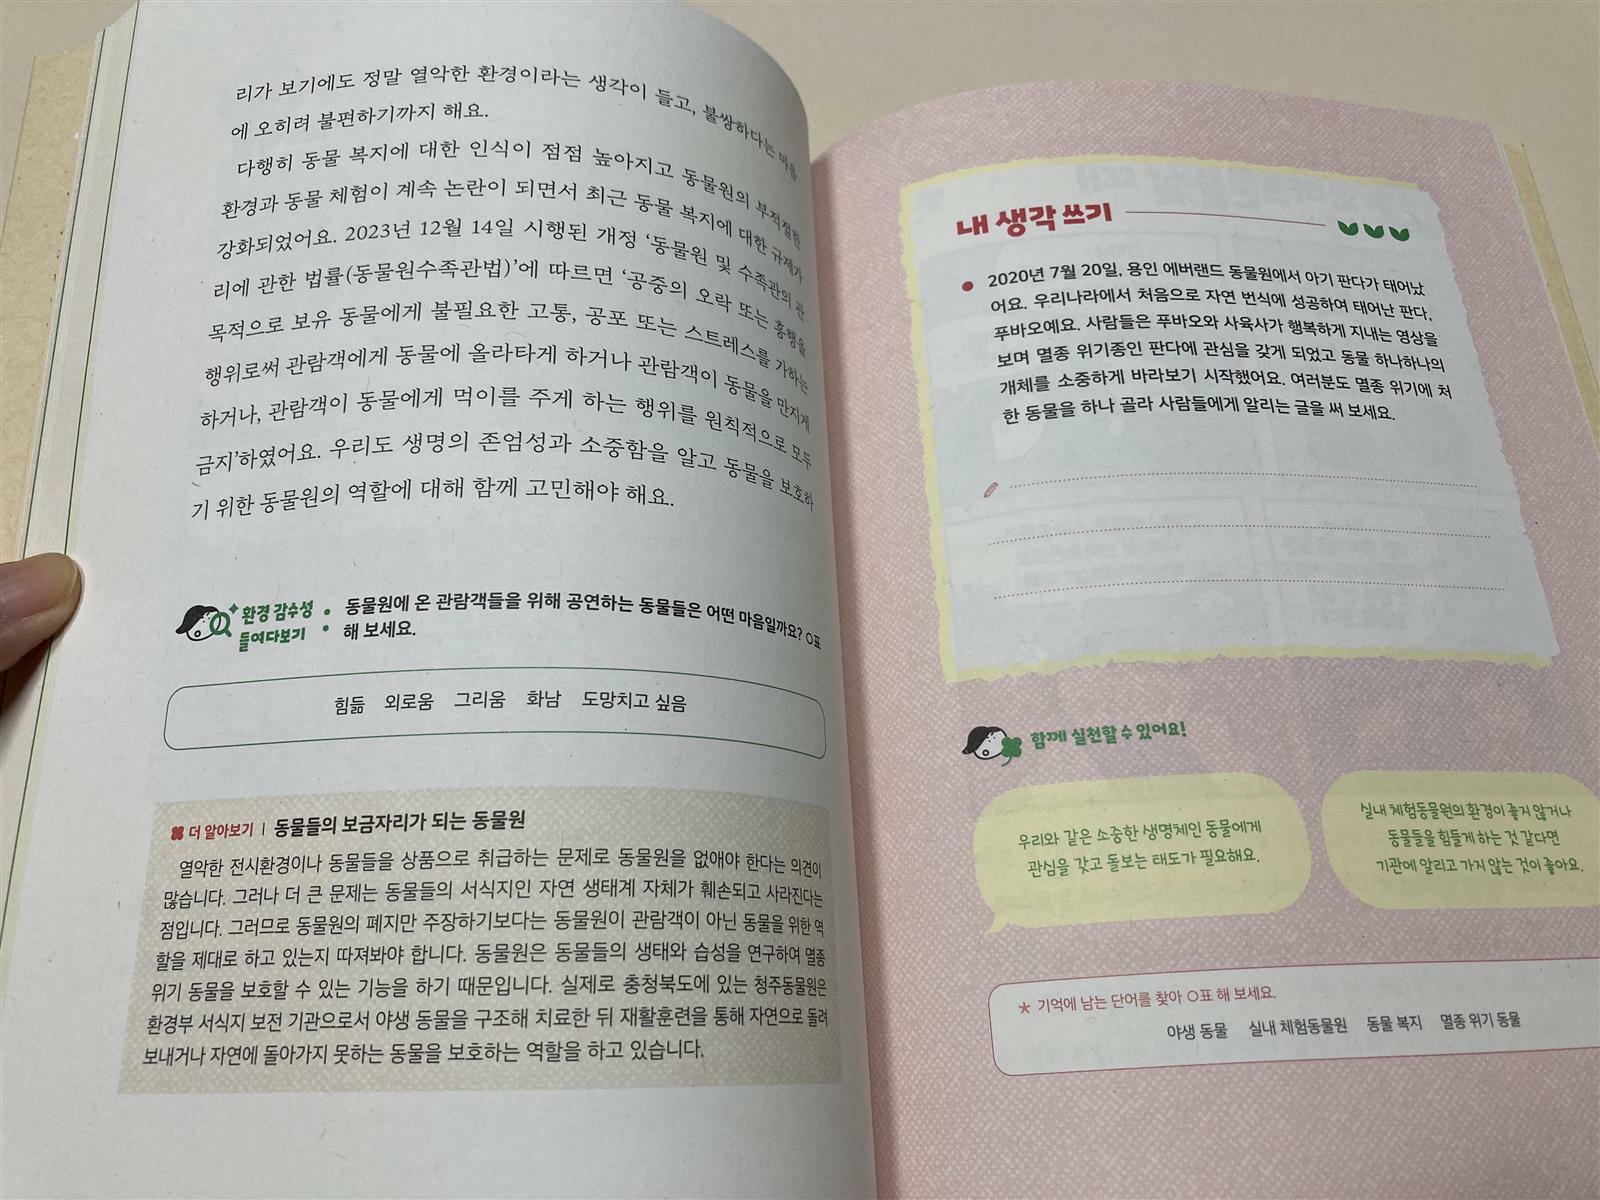 리가 보기에도 정말 열악한 환경이라는 생각이 들고, 불쌍하다는 마음
에 오히려 불편하기까지 해요.
다행히 동물 복지에 대한 인식이 점점 높아지고 동물원의 부적절한
환경과 동물 체험이 계속 논란이 되면서 최근 동물 복지에 대한 규제가
강화되었어요. 2023년 12월 14일 시행된 개정 ‘동물원 및 수족관의 관
리에 관한 법률(동물원수족관법)’에 따르면 ‘공중의 오락 또는 흥행을
목적으로 보유 동물에게 불필요한 고통, 공포 또는 스트레스를 가하는
행위로써 관람객에게 동물에 올라타게 하거나 관람객이 동물을 만지게
하거나, 관람객이 동물에게 먹이를 주게 하는 행위를 원칙적으로 모두
금지’하였어요. 우리도 생명의 존엄성과 소중함을 알고 동물을 보호하
기 위한 동물원의 역할에 대해 함께 고민해야 해요.
환경 감수성
들여다보기
동물원에 온 관람객들을 위해 공연하는 동물들은 어떤 마음일까요? ○표
해 보세요.
힘듦 외로움 그리움 화남 도망치고 싶음
더 알아보기 | 동물들의 보금자리가 되는 동물원
열악한 전시환경이나 동물들을 상품으로 취급하는 문제로 동물원을 없애야 한다는 의견이
많습니다. 그러나 더 큰 문제는 동물들의 서식지인 자연 생태계 자체가 훼손되고 사라진다는
점입니다. 그러므로 동물원의 폐지만 주장하기보다는 동물원이 관람객이 아닌 동물을 위한 역
할을 제대로 하고 있는지 따져봐야 합니다. 동물원은 동물들의 생태와 습성을 연구하여 멸종
위기 동물을 보호할 수 있는 기능을 하기 때문입니다. 실제로 충청북도에 있는 청주동물원은
환경부 서식지 보전 기관으로서 야생 동물을 구조해 치료한 뒤 재활훈련을 통해 자연으로 돌려
보내거나 자연에 돌아가지 못하는 동물을 보호하는 역할을 하고 있습니다.
내 생각 쓰기
● 2020년 7월 20일, 용인 에버랜드 동물원에서 아기 판다가 태어났
어요. 우리나라에서 처음으로 자연 번식에 성공하여 태어난 판다,
푸바오예요. 사람들은 푸바오와 사육사가 행복하게 지내는 영상을
보며 멸종 위기종인 판다에 관심을 갖게 되었고 동물 하나하나의
개체를 소중하게 바라보기 시작했어요. 여러분도 멸종 위기에 처
한 동물을 하나 골라 사람들에게 알리는 글을 써 보세요.
함께 실천할 수 있어요!
우리와 같은 소중한 생명체인 동물에게
관심을 갖고 돌보는 태도가 필요해요.
실내 체험동물원의 환경이 좋지 않거나
동물들을 힘들게 하는 것 같다면
기관에 알리고 가지 않는 것이 좋아요.
* 기억에 남는 단어를 찾아 ○표 해 보세요.
야생 동물 실내 체험동물원 동물 복지 멸종 위기 동물